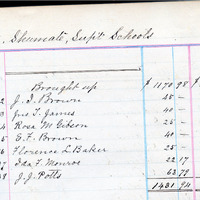 Shumate, Supt Schools
Brought up $ 1170.98
2 J. D. Brown 25 —
3 Jno T. James 40 —
4 Rosa M Gibson 25 —
5 E. F. Brown 40 —
6 Florence L Baker 25 —
7 Ida F. Monroe 22 17
8 J. J. Potts 63 79
1431.94